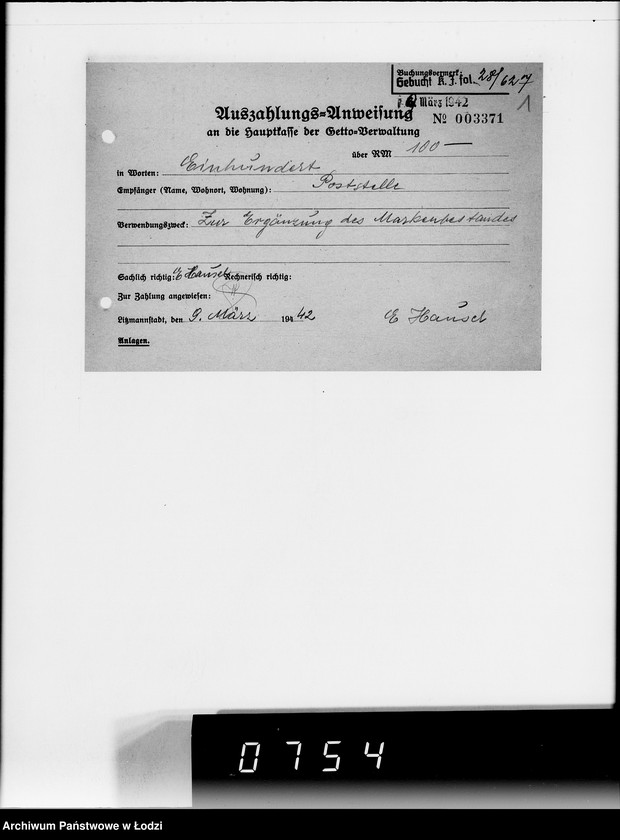 Buchungsvermerk:
Gebucht K. J. fol. 28/627
März 1942
1
Auszahlungs-Anweisung
Nº 003371
an die Hauptkasse der Getto-Verwaltung
über RM 100 —
in Worten: Einhundert
Empfänger (Name, Wohnort, Wohnung): Poststelle
Verwendungszweck: Zur Ergänzung des Markenbestandes
Sachlich richtig: E Hausch Rechnerisch richtig:
Zur Zahlung angewiesen:
Litzmannstadt, den 9. März 194 42 E Hausch
Anlagen.
0754
Archiwum Państwowe w Łodzi